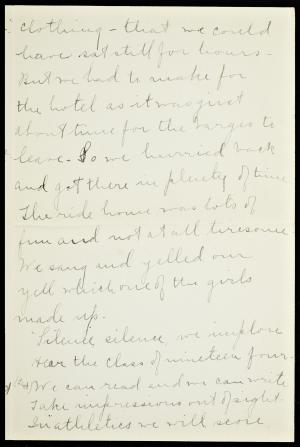 clothing - that we could
have sat still for hours -
But we had to make for
the hotel as it was just
about time for the barges to
leave - So we hurried back
and got there in plenty of time
The ride home was lots of
fun and not at all tiresome
We sang and yelled our
yell which one of the girls
made up.
"Silence silence, we implore
Hear the class of nineteen four -
We can read and we can write
Take impressions out of sight.
In athletics we will score